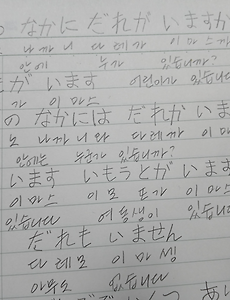 なかに だれが いますか
나까니 다레가 이마스까
안에 누가 있습니까?
が います 어린이가 있습니다
가 이마스
の なかには だれが いま
노 나까니와 다레가 이마
안에는 누군가 있습니까?
います いもうとが います
이마스 이모-또가 이마스
있습니다 여동생이 있습니다
だれも いません
다레모 이마셍
아무도 없습니다